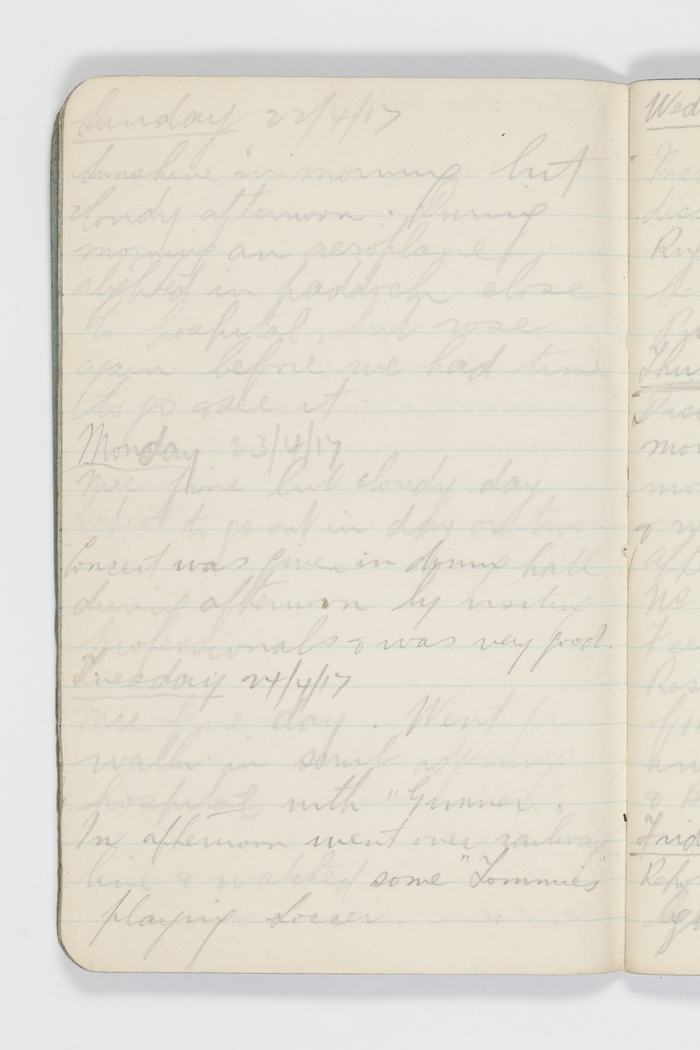 Sunday 22/4/17
Sunshine in morning but
cloudy afternoon. During
morning an aeroplane
alighted in paddock close
to hospital, but rose
again before we had time
to go & see it.
Monday 23/4/17
Nice fine but cloudy day
to go out in day or two
Concert was given in dining hall
during afternoon by visiting
professionals & was very good.
Tuesday 24/4/17
Nice fine day. Went for
walk in scrub
hospital with "Gunner".
In afternoon went over railway
line & watched some "Tommies"
playing Soccer.
Wed
Rug
Thur
mor
&
No
Res
&
Frid